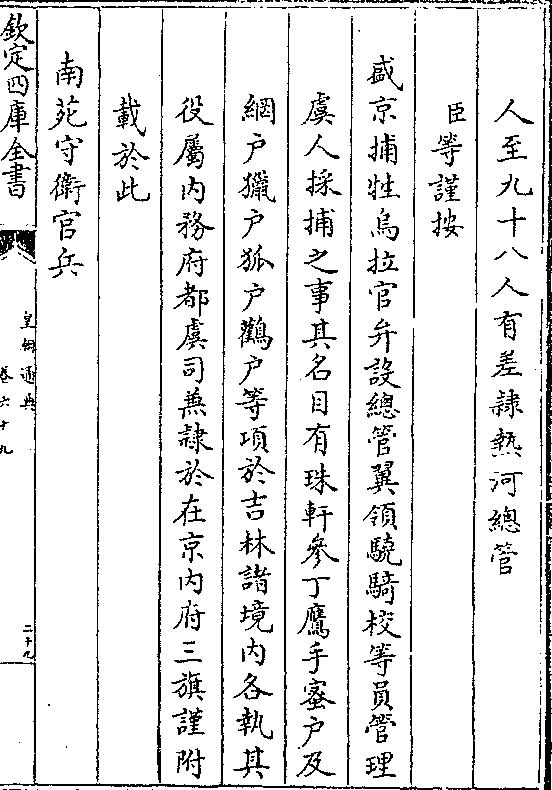 人至九十八人有差隷熱河總管
臣等謹按
盛京捕牲烏拉官弁設總管翼領驍騎校等員管理
虞人採捕之事其名目有珠軒參丁鷹手蜜户及
網户獵户狐户鸛户等項於吉林諸境内各執其
役屬内務府都虞司兼隷於在京内府三旗謹附
載於此
南苑守衛官兵
欽定四庫全書
皇朝通典
卷六十九
二十九